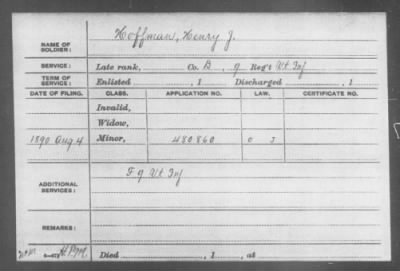 Hoffman, Henry J.
NAME OF SOLDIER:
SERVICE: Late rank, Co. B, 9 Reg't Vt Inf
TERM OF SERVICE: Enlisted , 1 Discharged , 1
DATE OF FILING. CLASS. APPLICATION NO. LAW. CERTIFICATE NO.
Invalid,
Widow,
1890 Aug 4 Minor, 480.860
F 9 Vt Inf
ADDITIONAL SERVICES:
REMARKS:
Died , 1 , at